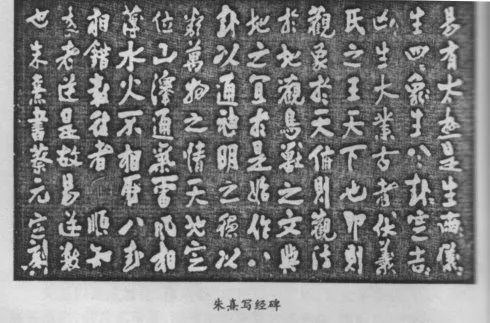 易有太極是生兩儀
生四象生八卦定吉
凶生大業古者伏羲
氏之王天下也仰則
觀象於天俯則觀法
於地觀鳥獸之文與
地之宜於是始作八
卦以通神明之德以
類萬物之情天地定
位山澤通氣雷風相
薄水火不相射八卦
相錯數往者順知
來者逆是故易逆數
也朱熹書蔡元定
朱熹写经碑